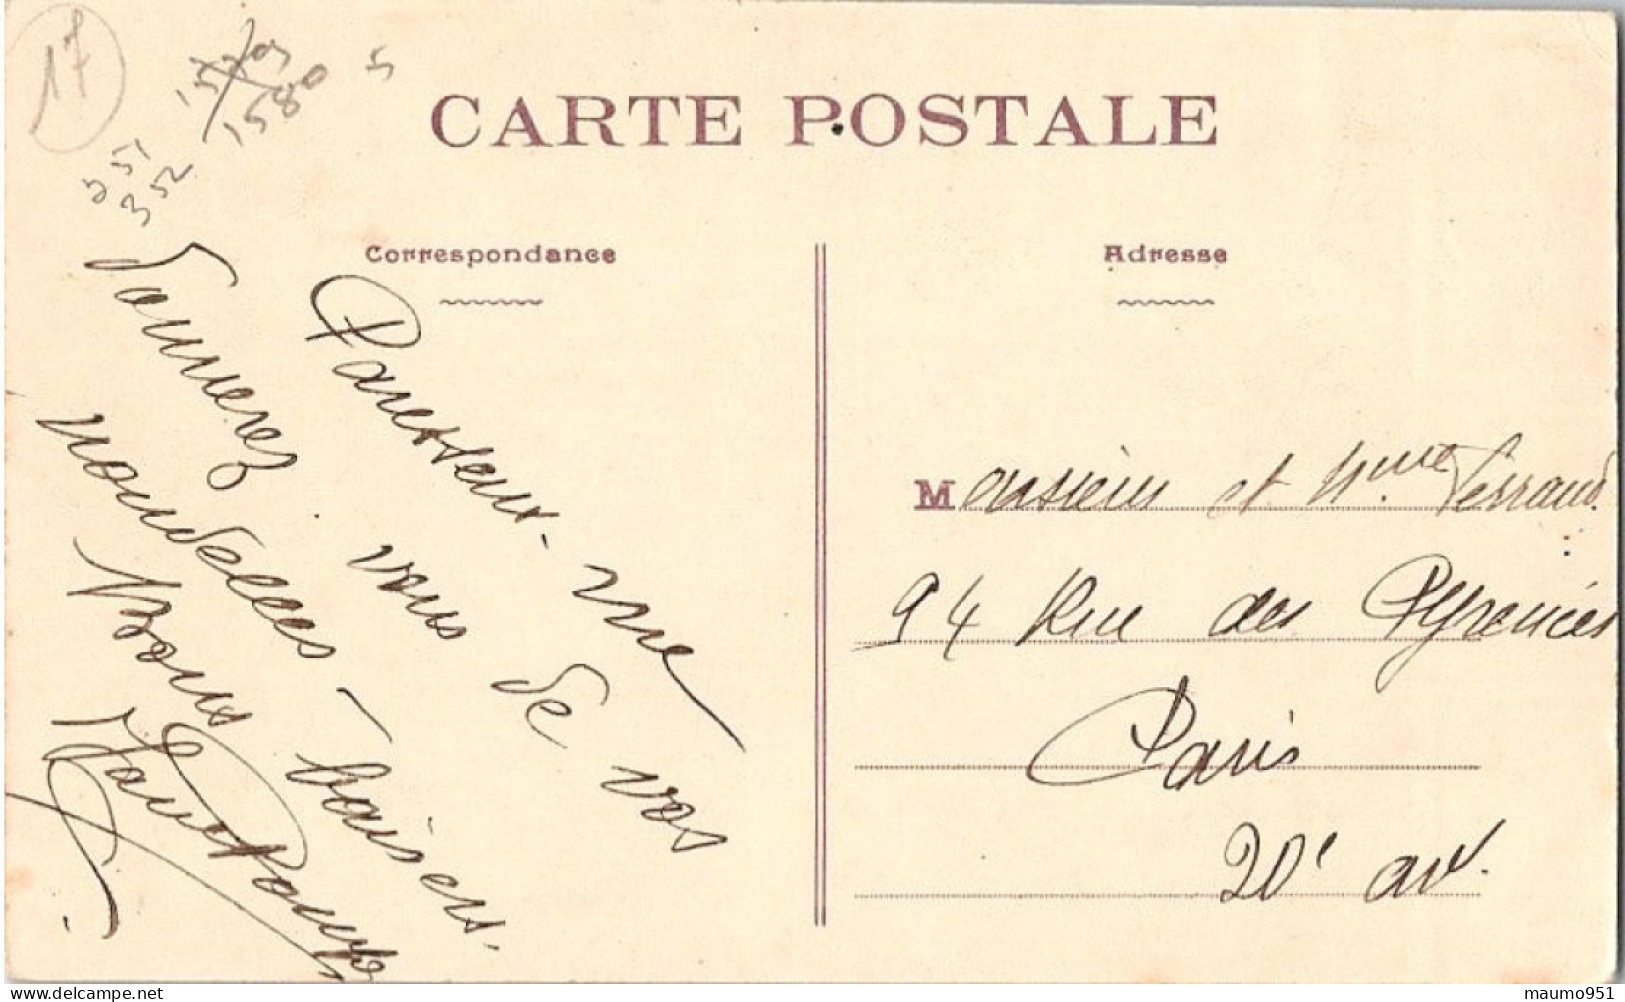 17
15703
1580
5
2 51
3 52
CARTE POSTALE
Correspondance
Adresse
Paresseux - me
donnerez vous de vos
nouvelles -
Bons baisers.
Monsieur et Mme Perraud.
94 Rue des Pyrénées
Paris
20e arrt.
maumo951